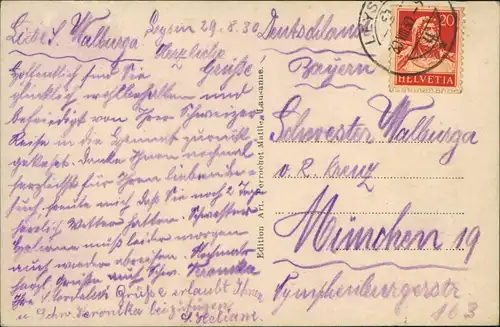 Leysin 29.8.30
Liebe S. Walburga
Herzliche
Grüße!
Hoffentlich sind Sie
glücklich wohlbehalten und
befriedigt von Ihrer Schweizer
Reise in die Heimat zurück
gekehrt. Danke Ihnen nochmal
herzlichst für Ihren lieben
freute mich daß Sie noch 2 Tage
herrlich Wetter hatten. Schwester
muß leider morgen
auch wieder abreisen. Nochmals
herzl. Grüße auch Schw. Veronika
Grüße erlaubt Ihnen
u Schw. Veronika beizufügen
S. Heliam.
Edition Art. Perrochet Matile, Lausanne.
Deutschland
Bayern
Schwester Walburga
v. R. Kreuz
München 19
Nymphenburgerstr
163
LEYSIN
20
HELVETIA